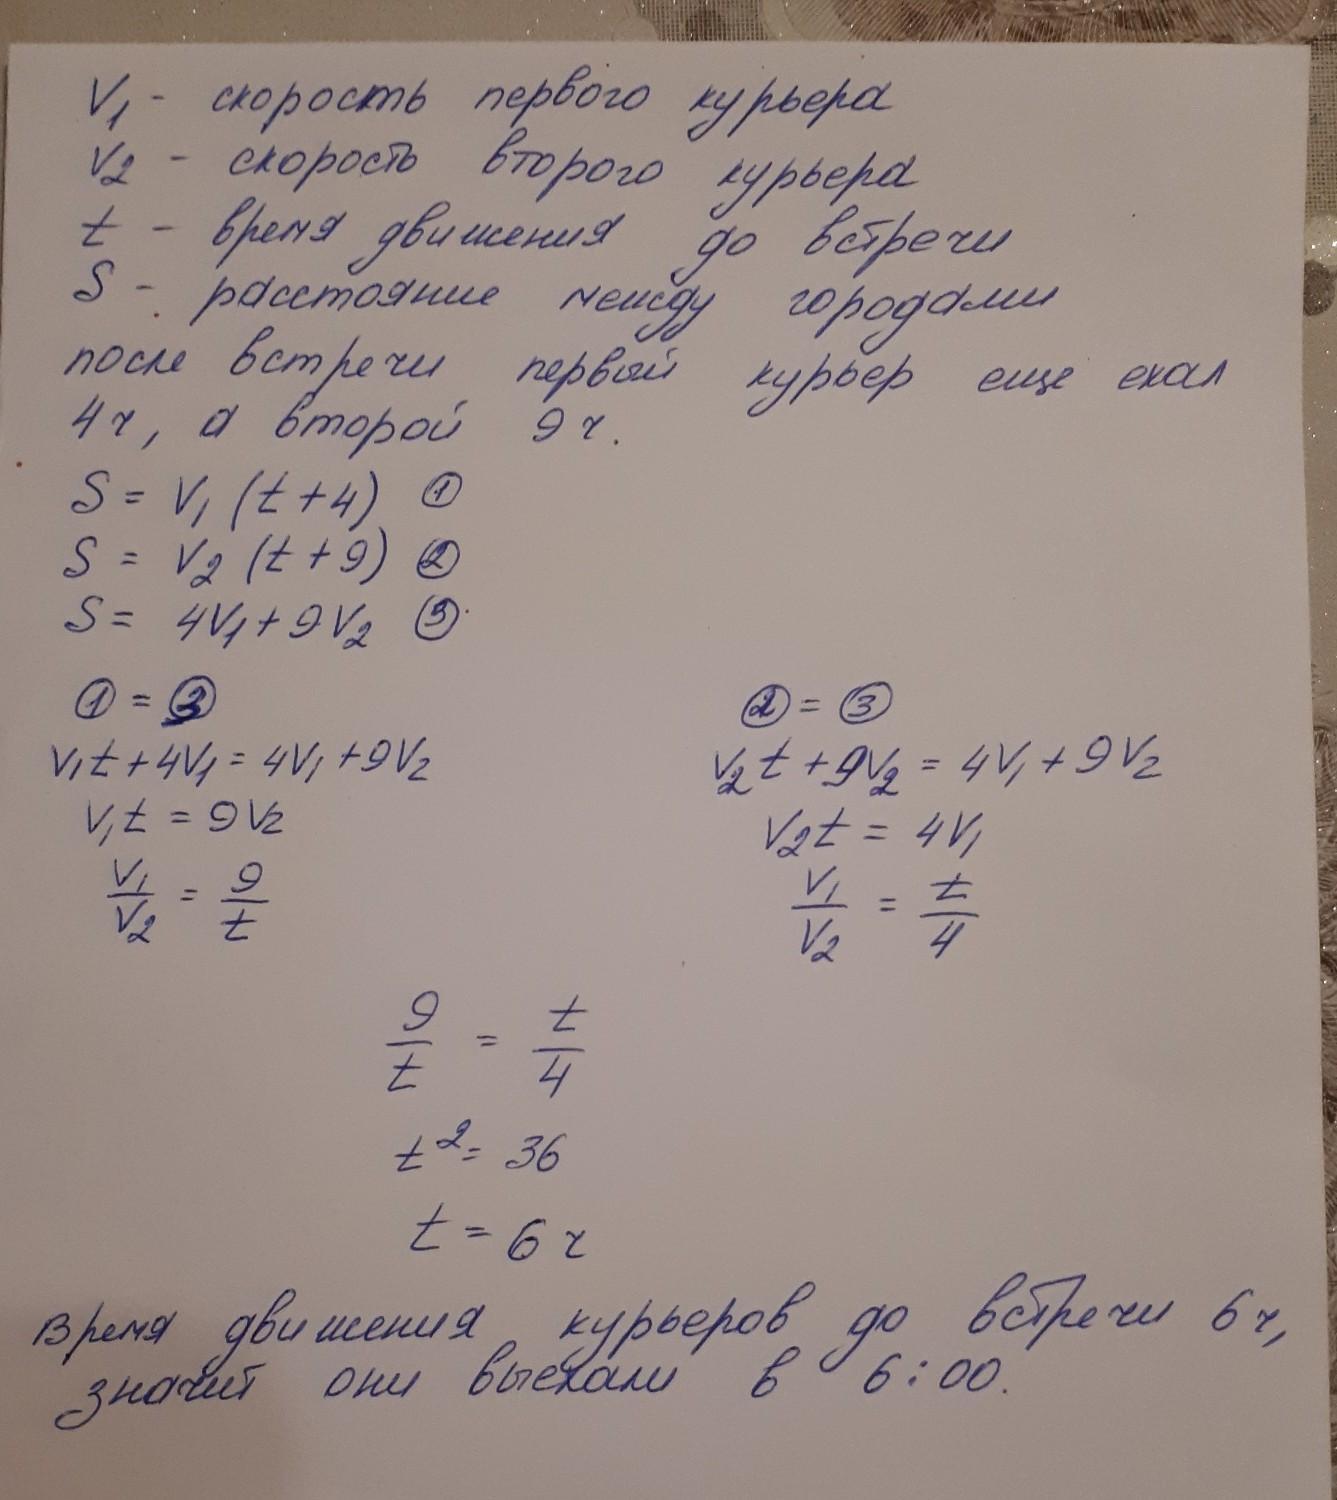 V₁ - скорость первого курьера
V₂ - скорость второго курьера
t - время движения до встречи
S - расстояние между городами
после встречи первый курьер еще ехал
4ч, а второй 9ч.
S = V₁ (t+4) ①
S = V₂ (t+9) ②
S = 4V₁+9V₂ ③
① = ③
V₁t+4V₁=4V₁+9V₂
V₁t = 9V₂
V₁/V₂ = 9/t
② = ③
V₂t+9V₂=4V₁+9V₂
V₂t = 4V₁
V₁/V₂ = t/4
9/t = t/4
t²=36
t=6ч
Время движения курьеров до встречи 6ч,
значит они выехали в 6:00.